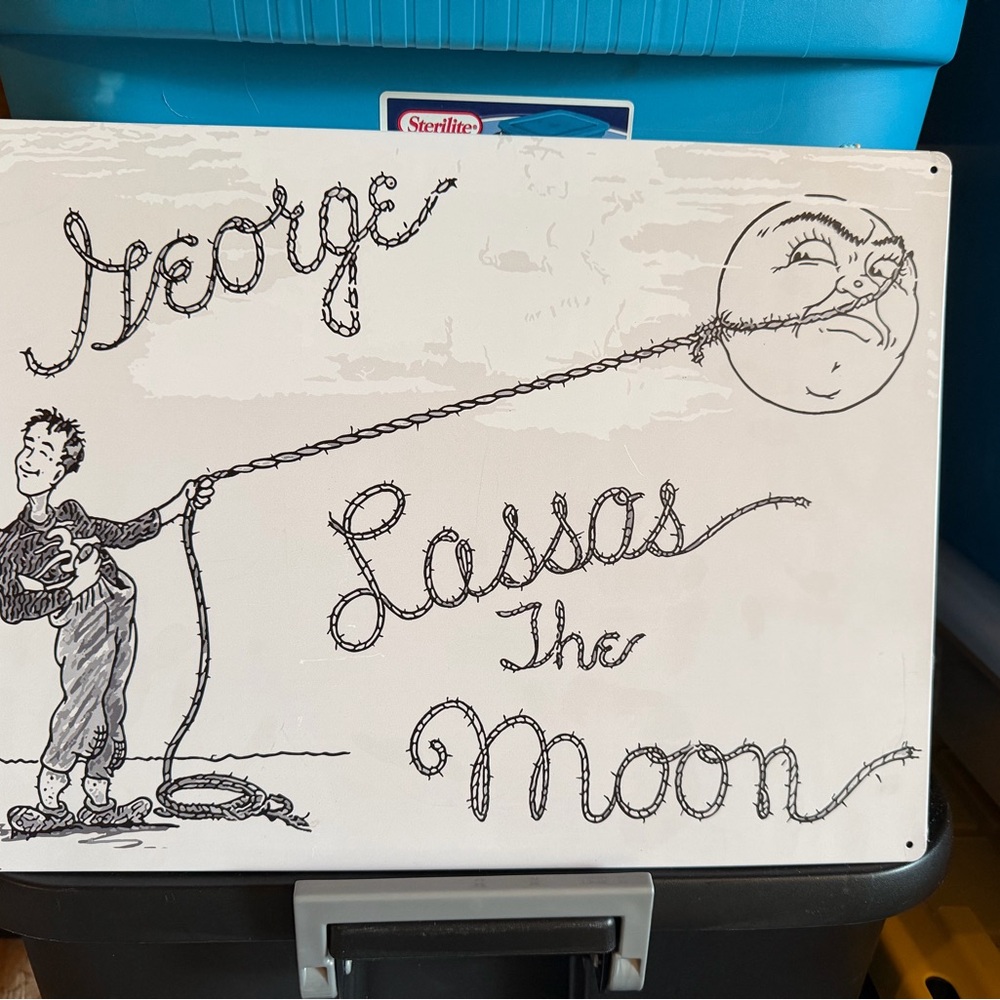 Sterilite®
George
Lassos
The
Moon